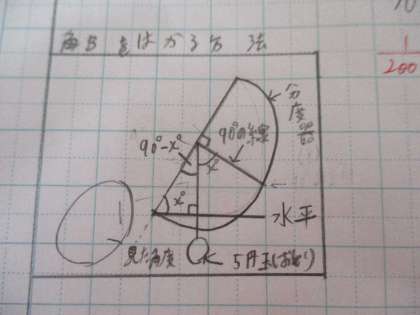 角度をはかる方法
1
200
分度器
90°の線
90°-x°
x
x°
水平
見た角度
5円玉(おもり)